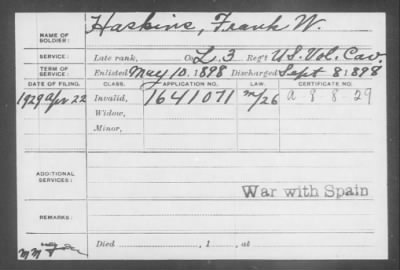 NAME OF SOLDIER: Haskins, Frank W.
SERVICE: Late rank, Co L. 3 Reg't U.S. Vol. Cav.
TERM OF SERVICE: Enlisted May 10. 1898 Discharged Sept 8 1898
DATE OF FILING. CLASS. APPLICATION NO. LAW. CERTIFICATE NO.
1929 Apr 22 Invalid, 1641071 m/26 a 8 8 29
Widow,
Minor,
ADDITIONAL SERVICES:
War with Spain
REMARKS:
Died , 1 , at